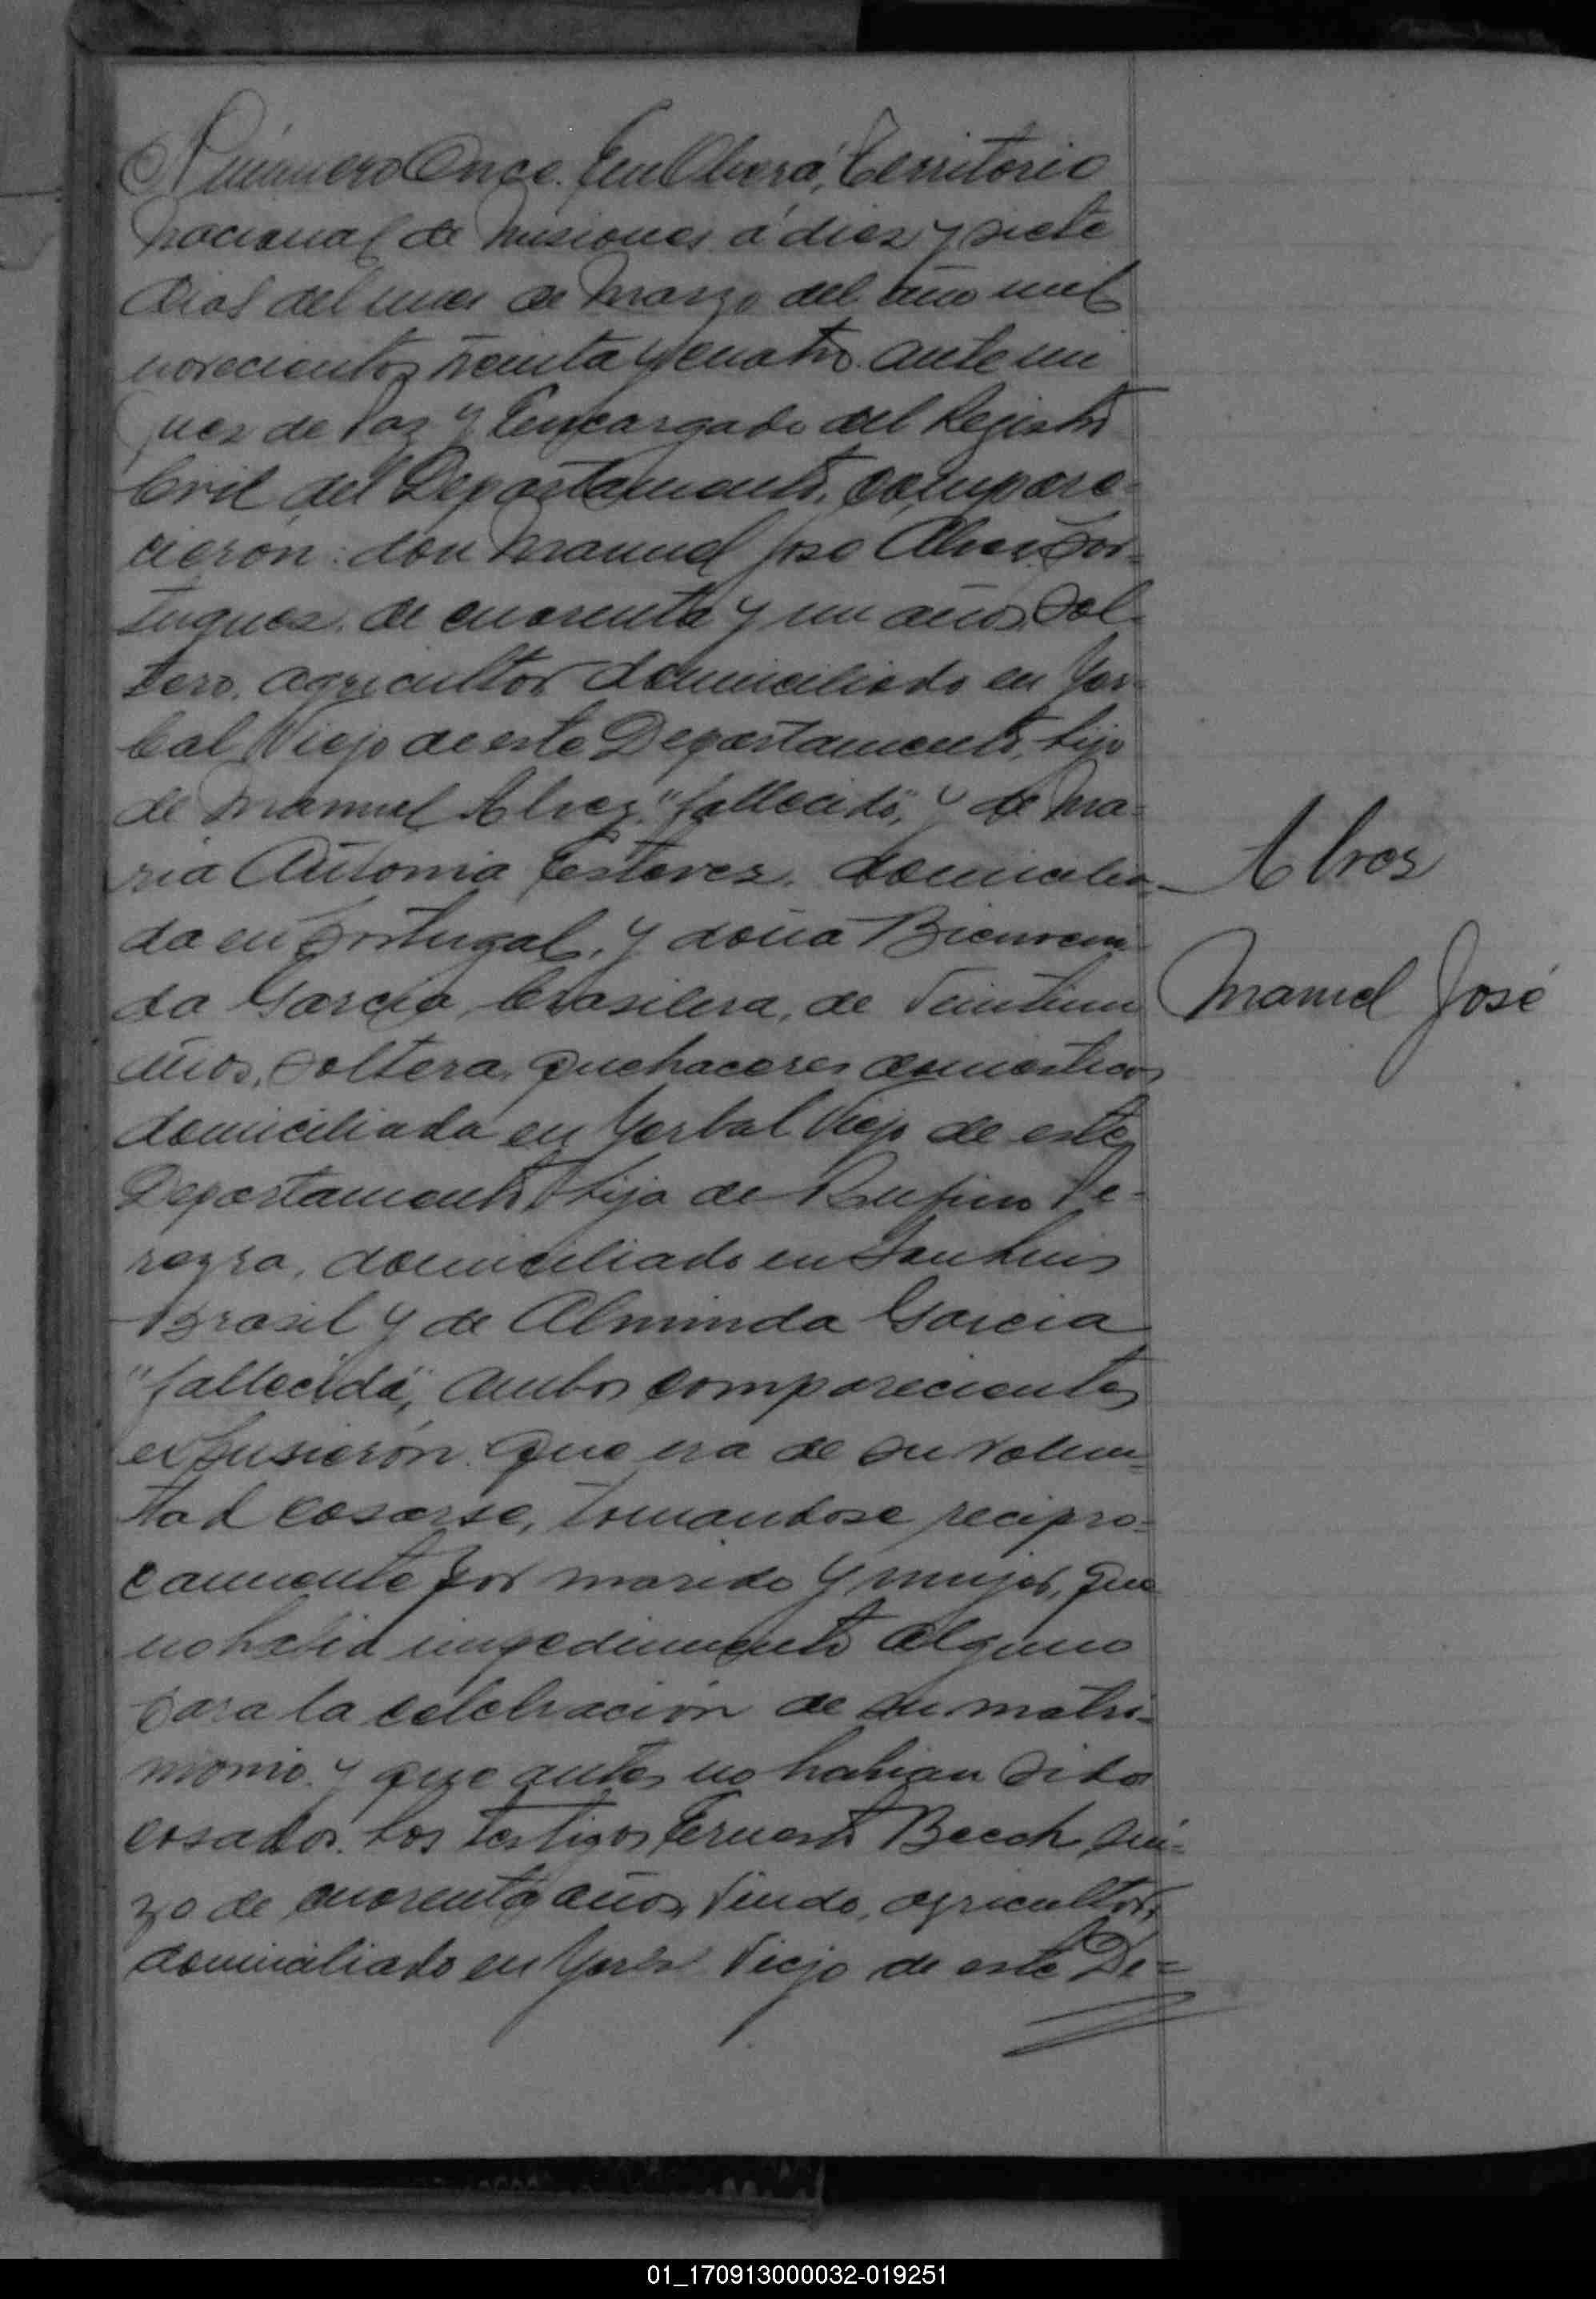 Número Once. En Oberá, Territorio
Nacional de Misiones á diez y siete
dias del mes de Marzo del año mil
novecientos treinta y cuatro. ante mi
Juez de Paz y Encargado del Registro
Civil del Departamento, compare-
cieron: don Manuel José Alvez, Por-
tuguez, de cuarenta y un años, Sol-
tero, agricultor domiciliado en Yer-
bal Viejo de este Departamento, hijo
de Manuel Alvez, "fallecido", y de Ma-
ria Antonia Estevez, domicilia-
da en Portugal, y doña Bienveni-
da Garcia, brasilera, de Veintiun
años, Soltera, quehaceres domesticos
domiciliada en Yerbal Viejo de este
Departamento, hija de Rufino Pe-
reyra, domiciliado en San Luis
Brasil y de Alminda Garcia
"fallecida", Ambos comparecientes
expusierón que era de su volun-
tad casarse, tomandose recipro-
camente por marido y mujer, que
no habia impedimento alguno
para la celebración de su matri-
monio y que antes no habian sido
casados. Los testigos Ernesto Beech, Sui-
zo de cuarenta años, Viudo, agricultor,
domiciliado en Yerbal Viejo de este De-
Alvez
Manuel José
01_170913000032-019251